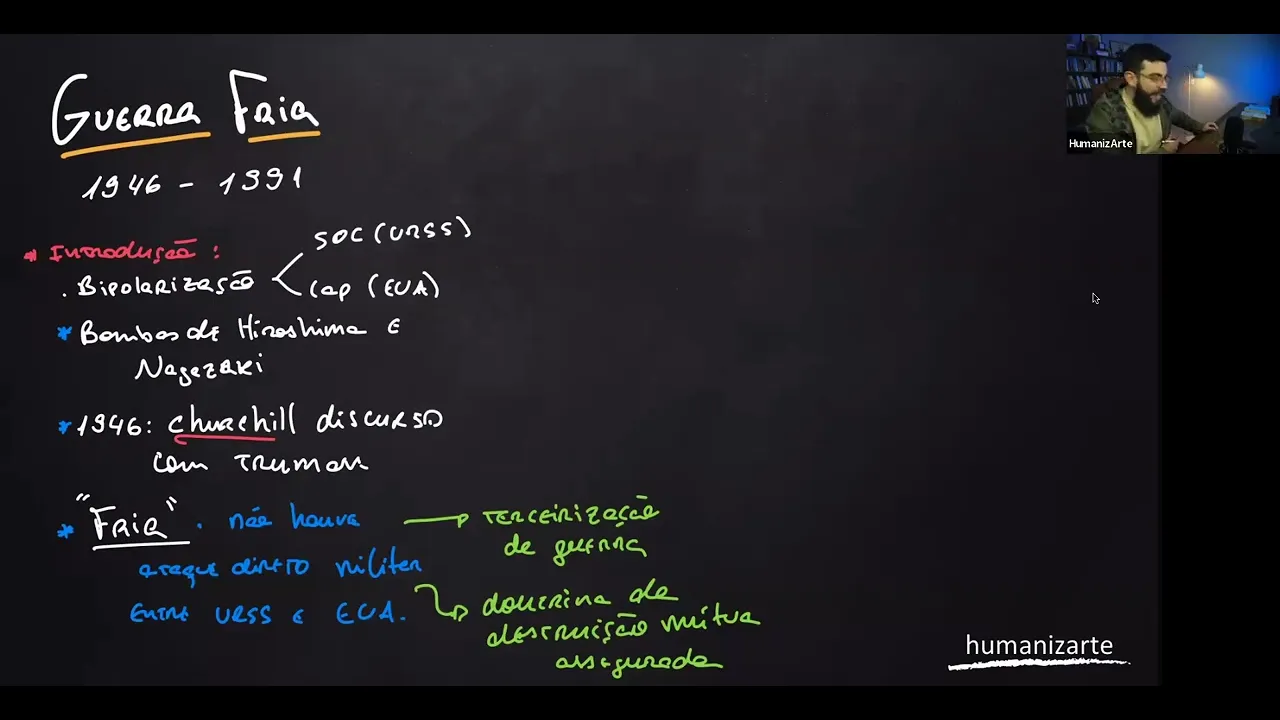 GUERRA FRIA
1946 - 1991
Introdução:
. Bipolarização
SOC (URSS)
Cap (EUA)
* Bombas de Hiroshima e
Nagazaki
* 1946: Churchill discurso
com Truman
* "FRIA" . não houve
ataque direto militar
entre URSS e EUA.
terceirização
de guerra
doutrina de
destruição mútua
assegurada
HumanizArte
humanizarte